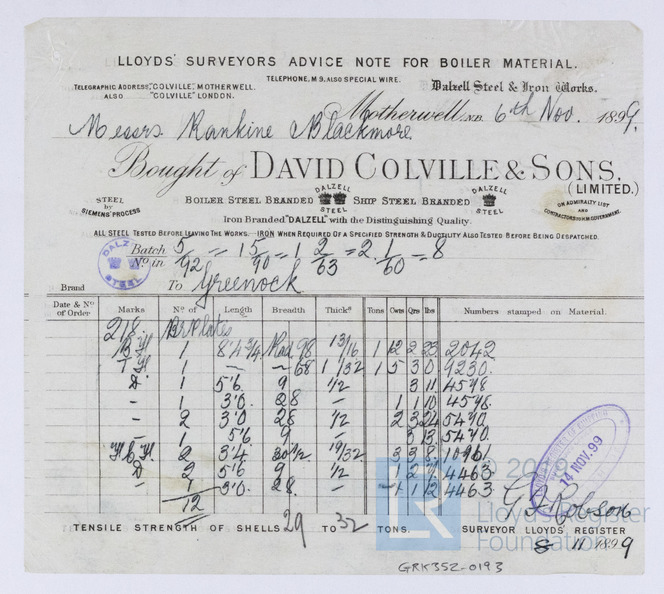 LLOYDS' SURVEYORS ADVICE NOTE FOR BOILER MATERIAL.
TELEPHONE, M 9. ALSO SPECIAL WIRE.
TELEGRAPHIC ADDRESS, "COLVILLE", MOTHERWELL.
ALSO "COLVILLE" LONDON.
Dalzell Steel & Iron Works.
Motherwell, N.B. 6th Nov. 1899.
Messrs Rankine & Blackmore
Bought of DAVID COLVILLE & SONS.
(LIMITED.)
STEEL by SIEMENS' PROCESS
BOILER STEEL BRANDED DALZELL STEEL SHIP STEEL BRANDED DALZELL STEEL
ON ADMIRALTY LIST AND CONTRACTORS TO H.M. GOVERNMENT.
Iron Branded "DALZELL" with the Distinguishing Quality.
ALL STEEL TESTED BEFORE LEAVING THE WORKS. IRON WHEN REQUIRED OF A SPECIFIED STRENGTH & DUCTILITY ALSO TESTED BEFORE BEING DESPATCHED.
DALZELL STEEL
Batch No. in 5/92 = 1 5/90 = 1 2/63 = 2. 1/60 = 8
Brand To Greenock
Date & No of Order Marks No of Length Breadth Thicks Tons Cwts Qrs lbs Numbers stamped on Material.
218 Br Plates
1 8'4 3/4 Rad 98 13/16 1 12 2 23 2042
1 - - 68 1 1/32 1 5 3 0 9230.
D. 1 5'6 9 1/2 3 11 4598
- 1 3'0 28 - 1 1 10 4598.
- 2 3'0 28 1/2 2 3 24 5490
- 1 5'6 9 - 3 13 5490.
2 3'4 30 1/2 19/32 3 3 8 10961
D 2 5'6 9 1/2 1 2 4463
- 1 3'0 28. - 1 1 12 4463
12
14 NOV. 99
© 2019
Lloyd's Register
Foundation
LR
Robson
TENSILE STRENGTH OF SHELLS 29 TO 32 TONS.
SURVEYOR LLOYDS' REGISTER
8 11 1899
GRK352-0193